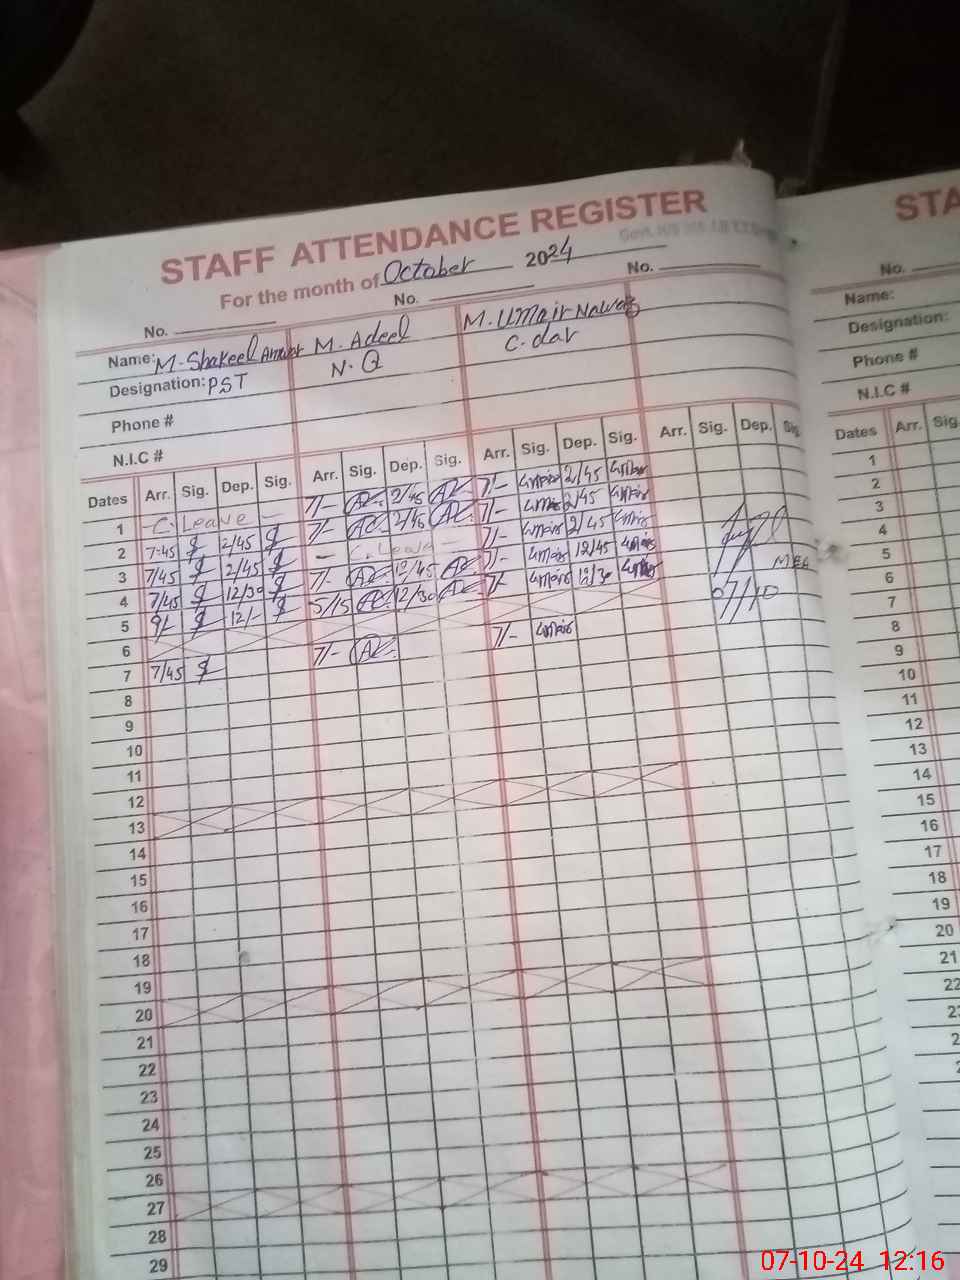 STAFF ATTENDANCE REGISTER
For the month of October 2024
No. No. No.
Name: M. Shakeel Anwar M. Adeel M. Umair Nawaz
Designation: PST N.Q C. dar
Phone #
N.I.C #
Dates Arr. Sig. Dep. Sig. Arr. Sig. Dep. Sig. Arr. Sig. Dep. Sig. Arr. Sig. Dep. Sig.
1 - C. Leave - 7/- 2/45 7/- Umair 2/45 Umair
2 7:45 2/45 7/- 2/45 7/- Umair 2/45 Umair
3 7/45 2/45 - C. Leave - 7/- Umair 2/45 Umair
4 7/45 12/30 7/- 12/45 7/- Umair 12/45 Umair
5 9/- 12/- 5/15 12/30 7/- Umair 12/30 Umair
MEA
07/10
6
7 7/45 7/- 7/- Umair
8
9
10
11
12
13
14
15
16
17
18
19
20
21
22
23
24
25
26
27
28
29
STA
No.
Name:
Designation:
Phone #
N.I.C #
Dates Arr. Sig.
1
2
3
4
5
6
7
8
9
10
11
12
13
14
15
16
17
18
19
20
21
22
07-10-24 12:16